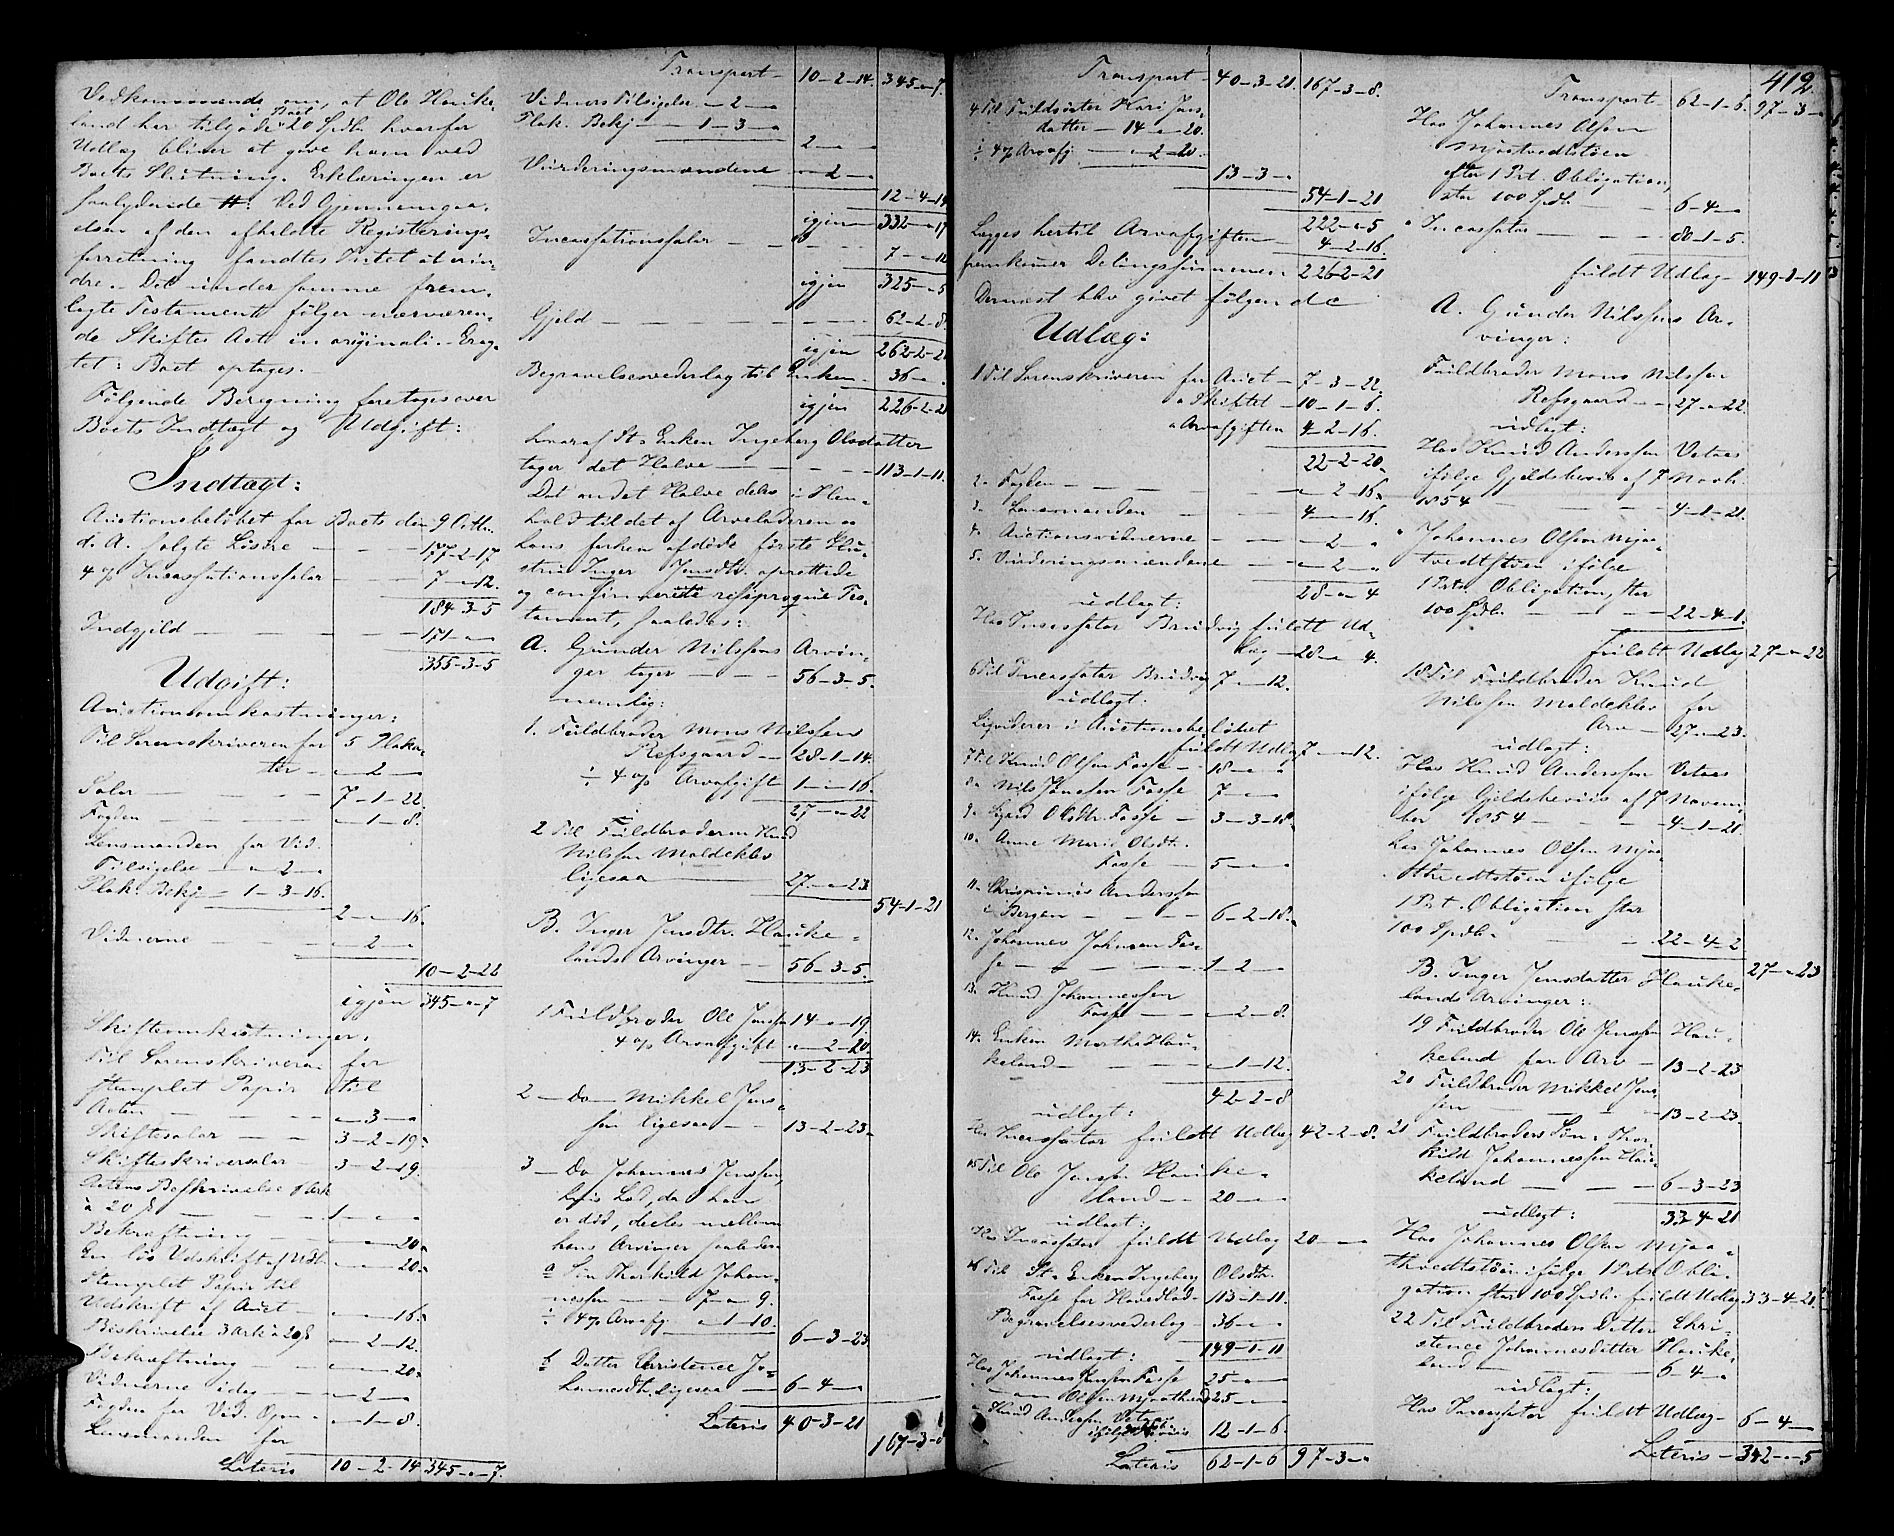 Vedkommende om, at Ole Hauke-
land har tilgode i Boet 20 Spdlr hvorfor
Udlæg bliver at give ham ved
Boets Slutning. Erklæringen er
saalydende #: Ved Gjennemgaa-
elsen af den afholdte Registrerings-
forretning fandtes Intet at erin-
dre. Det under samme frem-
lagte Testament følger nærværen-
de Skiftes Act in originali. Erag-
tet: Boet optages.
Følgende Beregning foretages over
Boets Indtægt og Udgift:
Indtægt:
Auctionsbeløbet for Boets den 9 Octbr.
d. A. solgte Løsøre — — — 177-2-17
4 % Incassationssalær — — 7-"-12.
184-3-5
Indgjeld — — — 171-"-"
355-3-5
Udgift:
Auctionsomkostninger:
Til Sorenskriveren for 5 Plaka-
ter — "-2-"
Salær — — — 7-1-22.
Fogden — — — "-1-8.
Lensmanden for Vid.
Tilsigelse — "-2-"
Plak. Bekj. — 1-3-16.
2-"-16.
Vidnerne — — — "-2-"
10-2-22
igjen 345-"-7
Skifteomkostninger:
Til Sorenskriveren for
stemplet Papir til
Acten — — — "-3-"
Skiftesalær — — 3-2-19.
Skifteskriversalær — 3-2-19.
Actens Beskrivelse
à 20 ß — — 1-"-"
Bekræftning — — "-"-20.
En løs Udskrift af "-"-20.
Stemplet Papir til
Udskrift af Auct. — "-"-16.
Beskrivelse 3 Ark à 20ß "-2-12.
Bekræftning — — "-"-20.
Vidnerne idag — — "-2-"
Fogden for Vid. Opn. "-1-8.
Lensmanden for
Lateris 10-2-14 345-"-7.
Transport — 10-2-14. 345-"-7.
Vidners Tilsigelse — "-2-"
Plak. Bekj. — — 1-3-"
2-"-"
Vurderingsmændene "-2-"
12-4-14
igjen 332-"-17
Incassationssalær — — — 7-"-12
igjen 325-"-5
Gjeld — — — — 62-2-8.
igjen 262-2-21
Begravelsesvederlag til Enken — 36-"-"
igjen 226-2-21
hvoraf St. Enken Ingeborg Olsdatter
tager det Halve — — — 113-1-11.
Det andet Halve deles i Hen-
hold til det af Arveladeren og
hans forhen afdøde første Hu-
stru Inger Jensdtr. oprettede
og confirmerede resiproque Tes-
tament, saaledes:
A. Gunder Nilssens Arvin-
ger tager — — — 56-3-5.
nemlig:
1. Fuldbroder Mons Nilssen
Refsgaard — 28-1-14.
÷ 4 % Arvafgift 1-"-16.
27-"-22
2 Til Fuldbroderen Knud
Nilssen Moldeklev
ligesaa — 27-"-23
54-1-21
B. Inger Jensdtr. Hauke-
lands Arvinger — 56-3-5.
1 Fuldbroder Ole Jenssen 14-"-19.
4 % Arvafgift "-2-20
13-2-23
2 — Do — Mikkel Jens-
sen ligesaa — — 13-2-23.
3 — Do Johannes Jenssen,
hvis Lod, da han
er død, deles mellem
hans Arvinger saaledes
a Søn Thorkild Johan-
nessen — — 7-"-9.
÷ 4 % Arvafg. "-1-10.
6-3-23
b Datter Christence Jo-
hannesdtr. ligesaa — 6-4-"
Lateris 40-3-21
167-3-8
412.
Transport — 40-3-21. 167-3-8.
4 Til Fuldsøster Kari Jens-
datter — 14-"-20.
÷ 4 % Arvafg. — "-2-20.
13-3-"
54-1-21
222-"-5
Lægges hertil Arvafgiften — 4-2-16.
fremkommer Delingssummen 226-2-21
Dernæst blev givet følgende
Udlæg:
1 Til Sorenskriveren for Auct. — 7-3-22
" Skiftet — 10-1-6.
" Arvafgiften 4-2-16.
22-2-20.
2. Fogden — — — "-2-16.
3. Lensmanden — — 4-"-16.
4. Auctionsvidnerne — — "-2-"
5. Vurderingsmændene — "-2-"
28-"-4
udlagt:
Hos Incassator Brudvig fuldt Ud-
læg — 28-"-4.
6 Til Incassator Brudvig 7-"-12.
udlagt:
Liqviderer i Auctionsbeløbet
fuldt Udlæg 7-"-12.
7 Til Knud Olsen Fosse — 18-"-"
8 " Nils Jenssen Fosse 7-"-"
9. Sigrid Olsdtr. Fosse — 3-3-18.
10. Anne Marie Olsdtr.
Fosse — 5-"-"
11. Andersen
i Bergen — — — 6-2-18.
12. Johannes Johnsen Fos-
se — — — 1-2-"
13. Knud Johannessen
Fosse — — "-2-8.
14. Enken Marthe Hau-
keland — — — "-1-12.
42-2-8
udlagt:
Hos Incassator fuldt Udlæg 42-2-8.
15 Til Ole Jenssen Hauke-
land — — 20-"-"
udlagt:
Hos Incassator fuldt Udlæg 20-"-"
16 Til St. Enken Ingeborg Olsdtr.
Fosse for Hovedlod — 113-1-11.
Begravelsesvederlag — 36-"-"
149-1-11
udlagt:
Hos Johannes Jenssen Fosse 25-"-"
" — Olsen Mjaatvedt 25-"-"
" Knud Andersen Vetaas
ifølge Bevis 12-1-6.
Lateris 62-1-6 97-3-"
Transport — 62-1-6. 97-3-"
Hos Johannes Olsen
Mjaatvedtstøen
efter 1 Prt. Obligation,
stor 100 Spdlr — — 6-4-"
" Incassator — — 80-1-5.
fuldt Udlæg 149-1-11
A. Gunder Nilssens Ar-
vinger:
Fuldbroder Mons Nilssen
Refsgaard — — 27-"-22
udlagt:
Hos Knud Anderssen Vetaas
ifølge Gjeldsbevis af 7 Novb.
1854 — — — 4-1-21.
" Johannes Olsen Mjaa-
tvedtstøen ifølge
1 Prt. Obligation, stor
100 Spdlr. — — — 22-4-1.
fuldt Udlæg 27-"-22
18 Til Fuldbroder Knud
Nilssen Moldeklev for
Arv — 27-"-23.
udlagt:
Hos Knud Anderssen Vetaas
ifølge Gjeldsbevis af 7 Novem-
ber 1854 — — — 4-1-21
hos Johannes Olsen Mjaa-
thvedtstøen ifølge
1 Prt. Obligation stor
100 Spdlr. — — 22-4-2
27-"-23
B. Inger Jensdatter Hauke-
lands Arvinger:
19 Fuldbroder Ole Jenssen Hau-
keland for Arv — 13-2-23
20 Fuldbroder Mikkel Jens-
sen — — — 13-2-23.
21 Fuldbroders Søn Thor-
kild Johannessen Hau-
keland — — — 6-3-23
33-4-21
udlagt:
Hos Johannes Olsen Mjaa-
thvedtstøen ifølge 1 Prt. Obli-
gation stor 100 Spdlr. fuldt Udlæg 33-4-21.
22 Til Fuldbroders Datter Chri-
stence Johannesdatter Hauke-
land — — — 6-4-"
udlagt:
Hos Incassator fuldt Udlæg — 6-4-"
Lateris — 342-"-5